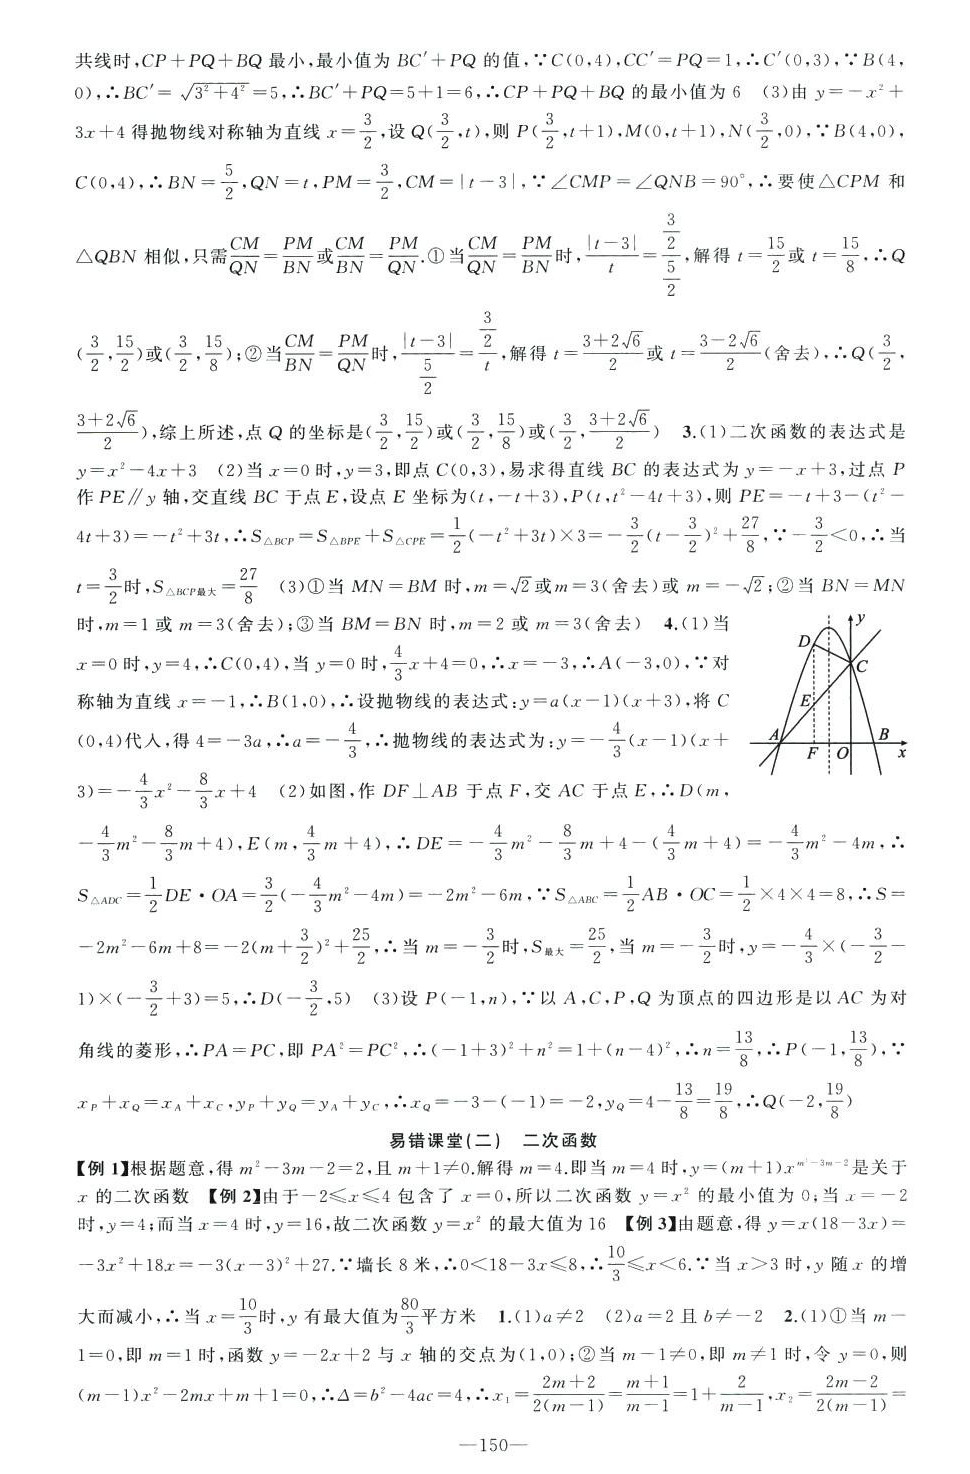 共线时,CP+PQ+BQ 最小,最小值为 BC′+PQ 的值,∵C(0,4),CC′=PQ=1,∴C′(0,3),∵B(4,
0),∴BC′=√(3²+4²)=5,∴BC′+PQ=5+1=6,∴CP+PQ+BQ 的最小值为 6 (3)由 y=-x²+
3x+4 得抛物线对称轴为直线 x=3/2,设 Q(3/2,t),则 P(3/2,t+1),M(0,t+1),N(3/2,0),∵B(4,0),
C(0,4),∴BN=5/2,QN=t,PM=3/2,CM=|t-3|,∵∠CMP=∠QNB=90°,∴要使△CPM 和
△QBN 相似,只需CM/QN=PM/BN或CM/BN=PM/QN.①当CM/QN=PM/BN时,|t-3|/t=(3/2)/(5/2),解得 t=15/2或 t=15/8,∴Q
(3/2,15/2)或(3/2,15/8);②当CM/BN=PM/QN时,|t-3|/(5/2)=(3/2)/t,解得 t=(3+2√6)/2或 t=(3-2√6)/2(舍去),∴Q(3/2,
(3+2√6)/2),综上所述,点 Q 的坐标是(3/2,15/2)或(3/2,15/8)或(3/2,(3+2√6)/2) 3.(1)二次函数的表达式是
y=x²-4x+3 (2)当 x=0 时,y=3,即点 C(0,3),易求得直线 BC 的表达式为 y=-x+3,过点 P
作 PE∥y 轴,交直线 BC 于点 E,设点 E 坐标为(t,-t+3),P(t,t²-4t+3),则 PE=-t+3-(t²-
4t+3)=-t²+3t,∴S△BCP=S△BPE+S△CPE=1/2(-t²+3t)×3=-3/2(t-3/2)²+27/8,∵-3/2<0,∴当
t=3/2时,S△BCP最大=27/8 (3)①当 MN=BM 时,m=√2或m=3(舍去)或 m=-√2;②当 BN=MN
时,m=1 或 m=3(舍去);③当 BM=BN 时,m=2 或 m=3(舍去) 4.(1)当
x=0 时,y=4,∴C(0,4),当 y=0 时,4/3x+4=0,∴x=-3,∴A(-3,0),∵对
称轴为直线 x=-1,∴B(1,0),∴设抛物线的表达式:y=a(x-1)(x+3),将 C
(0,4)代入,得 4=-3a,∴a=-4/3,∴抛物线的表达式为:y=-4/3(x-1)(x+
3)=-4/3x²-8/3x+4 (2)如图,作 DF⊥AB 于点 F,交 AC 于点 E,∴D(m,
y
D
C
E
A
F
O
B
x
-4/3m²-8/3m+4),E(m,4/3m+4),∴DE=-4/3m²-8/3m+4-(4/3m+4)=-4/3m²-4m,∴
S△ADC=1/2DE·OA=3/2(-4/3m²-4m)=-2m²-6m,∵S△ABC=1/2AB·OC=1/2×4×4=8,∴S=
-2m²-6m+8=-2(m+3/2)²+25/2,∴当 m=-3/2时,S最大=25/2,当 m=-3/2时,y=-4/3×(-3/2-
1)×(-3/2+3)=5,∴D(-3/2,5) (3)设 P(-1,n),∵以 A,C,P,Q 为顶点的四边形是以 AC 为对
角线的菱形,∴PA=PC,即 PA²=PC²,∴(-1+3)²+n²=1+(n-4)²,∴n=13/8,∴P(-1,13/8),∵
xP+xQ=xA+xC,yP+yQ=yA+yC,∴xQ=-3-(-1)=-2,yQ=4-13/8=19/8,∴Q(-2,19/8)
易错课堂(二) 二次函数
【例 1】根据题意,得 m²-3m-2=2,且 m+1≠0.解得 m=4.即当 m=4 时,y=(m+1)x^(m²-3m-2)是关于
x 的二次函数 【例 2】由于-2≤x≤4 包含了 x=0,所以二次函数 y=x² 的最小值为 0;当 x=-2
时,y=4;而当 x=4 时,y=16,故二次函数 y=x² 的最大值为16 【例 3】由题意,得 y=x(18-3x)=
-3x²+18x=-3(x-3)²+27.∵墙长 8 米,∴0<18-3x≤8,∴10/3≤x<6.∵当 x>3 时,y 随 x 的增
大而减小,∴当 x=10/3时,y 有最大值为80/3平方米 1.(1)a≠2 (2)a=2 且 b≠-2 2.(1)①当 m-
1=0,即 m=1 时,函数 y=-2x+2 与 x 轴的交点为(1,0);②当 m-1≠0,即 m≠1 时,令 y=0,则
(m-1)x²-2mx+m+1=0,∴Δ=b²-4ac=4,∴x₁=(2m+2)/2(m-1)=(m+1)/(m-1)=1+2/(m-1),x₂=(2m-2)/2(m-1)=
—150—